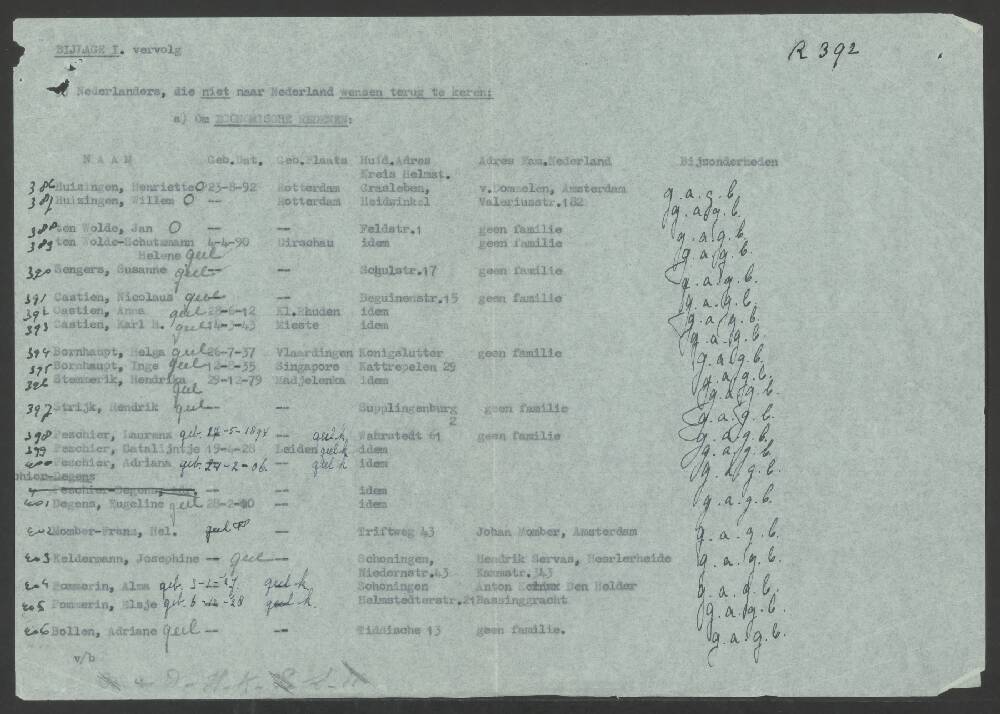 BIJLAGE I. vervolg
R 392
Nederlanders, die niet naar Nederland wensen terug te keren:
a) Om ECONOMISCHE REDENEN:
NAAM Geb.Dat. Geb.Plaats Huid.Adres Adres Fam.Nederland Bijzonderheden
Kreis Helmst.
386 Huizingen, Henriette O 23-8-92 Rotterdam Grasleben, v.Dommelen, Amsterdam g.a.g.b.
387 Huizingen, Willem O -- Rotterdam Heidwinkel Valeriusstr.182 g.a.g.b.
388 ten Wolde, Jan O -- -- Feldstr.1 geen familie g.a.g.b.
389 ten Wolde-Schutzmann 4-4-90 Dirschau idem geen familie g.a.g.b.
Helene geel
390 Sengers, Susanne geel -- -- Schulstr.17 geen familie g.a.g.b.
391 Castien, Nicolaus geel -- -- Beguinenstr.15 geen familie g.a.g.b.
392 Castien, Anna geel 28-6-12 Kl.Rhuden idem g.a.g.b.
393 Castien, Karl H. geel 14-3-43 Mieste idem g.a.g.b.
394 Bornhaupt, Helga geel 26-7-37 Vlaardingen Konigslutter geen familie g.a.g.b.
395 Bornhaupt, Inge geel 12-8-35 Singapore Kattrepelen 29 g.a.g.b.
396 Stemmerik, Hendrika 29-12-79 Madjelenka idem g.a.g.b.
geel
397 Strijk, Hendrik geel -- -- Supplingenburg geen familie g.a.g.b.
2
398 Peschier, Laurens geb. -5-18 -- geel k. Wahrstedt 61 geen familie g.a.g.b.
399 Peschier, Catalijntje 19-4-28 Leiden geel k idem g.a.g.b.
400 Peschier, Adriana geb. -2-06. -- geel k idem g.a.g.b.
hier-Degens
Peschier-Degens, -- idem
401 Degens, Eugeline geel 28-2-40 -- idem g.a.g.b.
402 Momber-Franz, Hel. geel -- Triftweg 43 Johan Momber, Amsterdam g.a.g.b.
403 Keldermann, Josephine -- geel -- Schoningen, Hendrik Servas, Heerlerheide g.a.g.b.
Niedernstr.43 Kamastr.343
404 Pommerin, Alma geb. geel k. Schoningen Anton Den Helder g.a.g.b.
405 Pommerin, Elsje geb. 6- -28 geel k. Helmstedterstr.21 Bassinggracht g.a.g.b.
406 Bollen, Adriane geel -- -- Tiddische 13 geen familie. g.a.g.b.
v/b